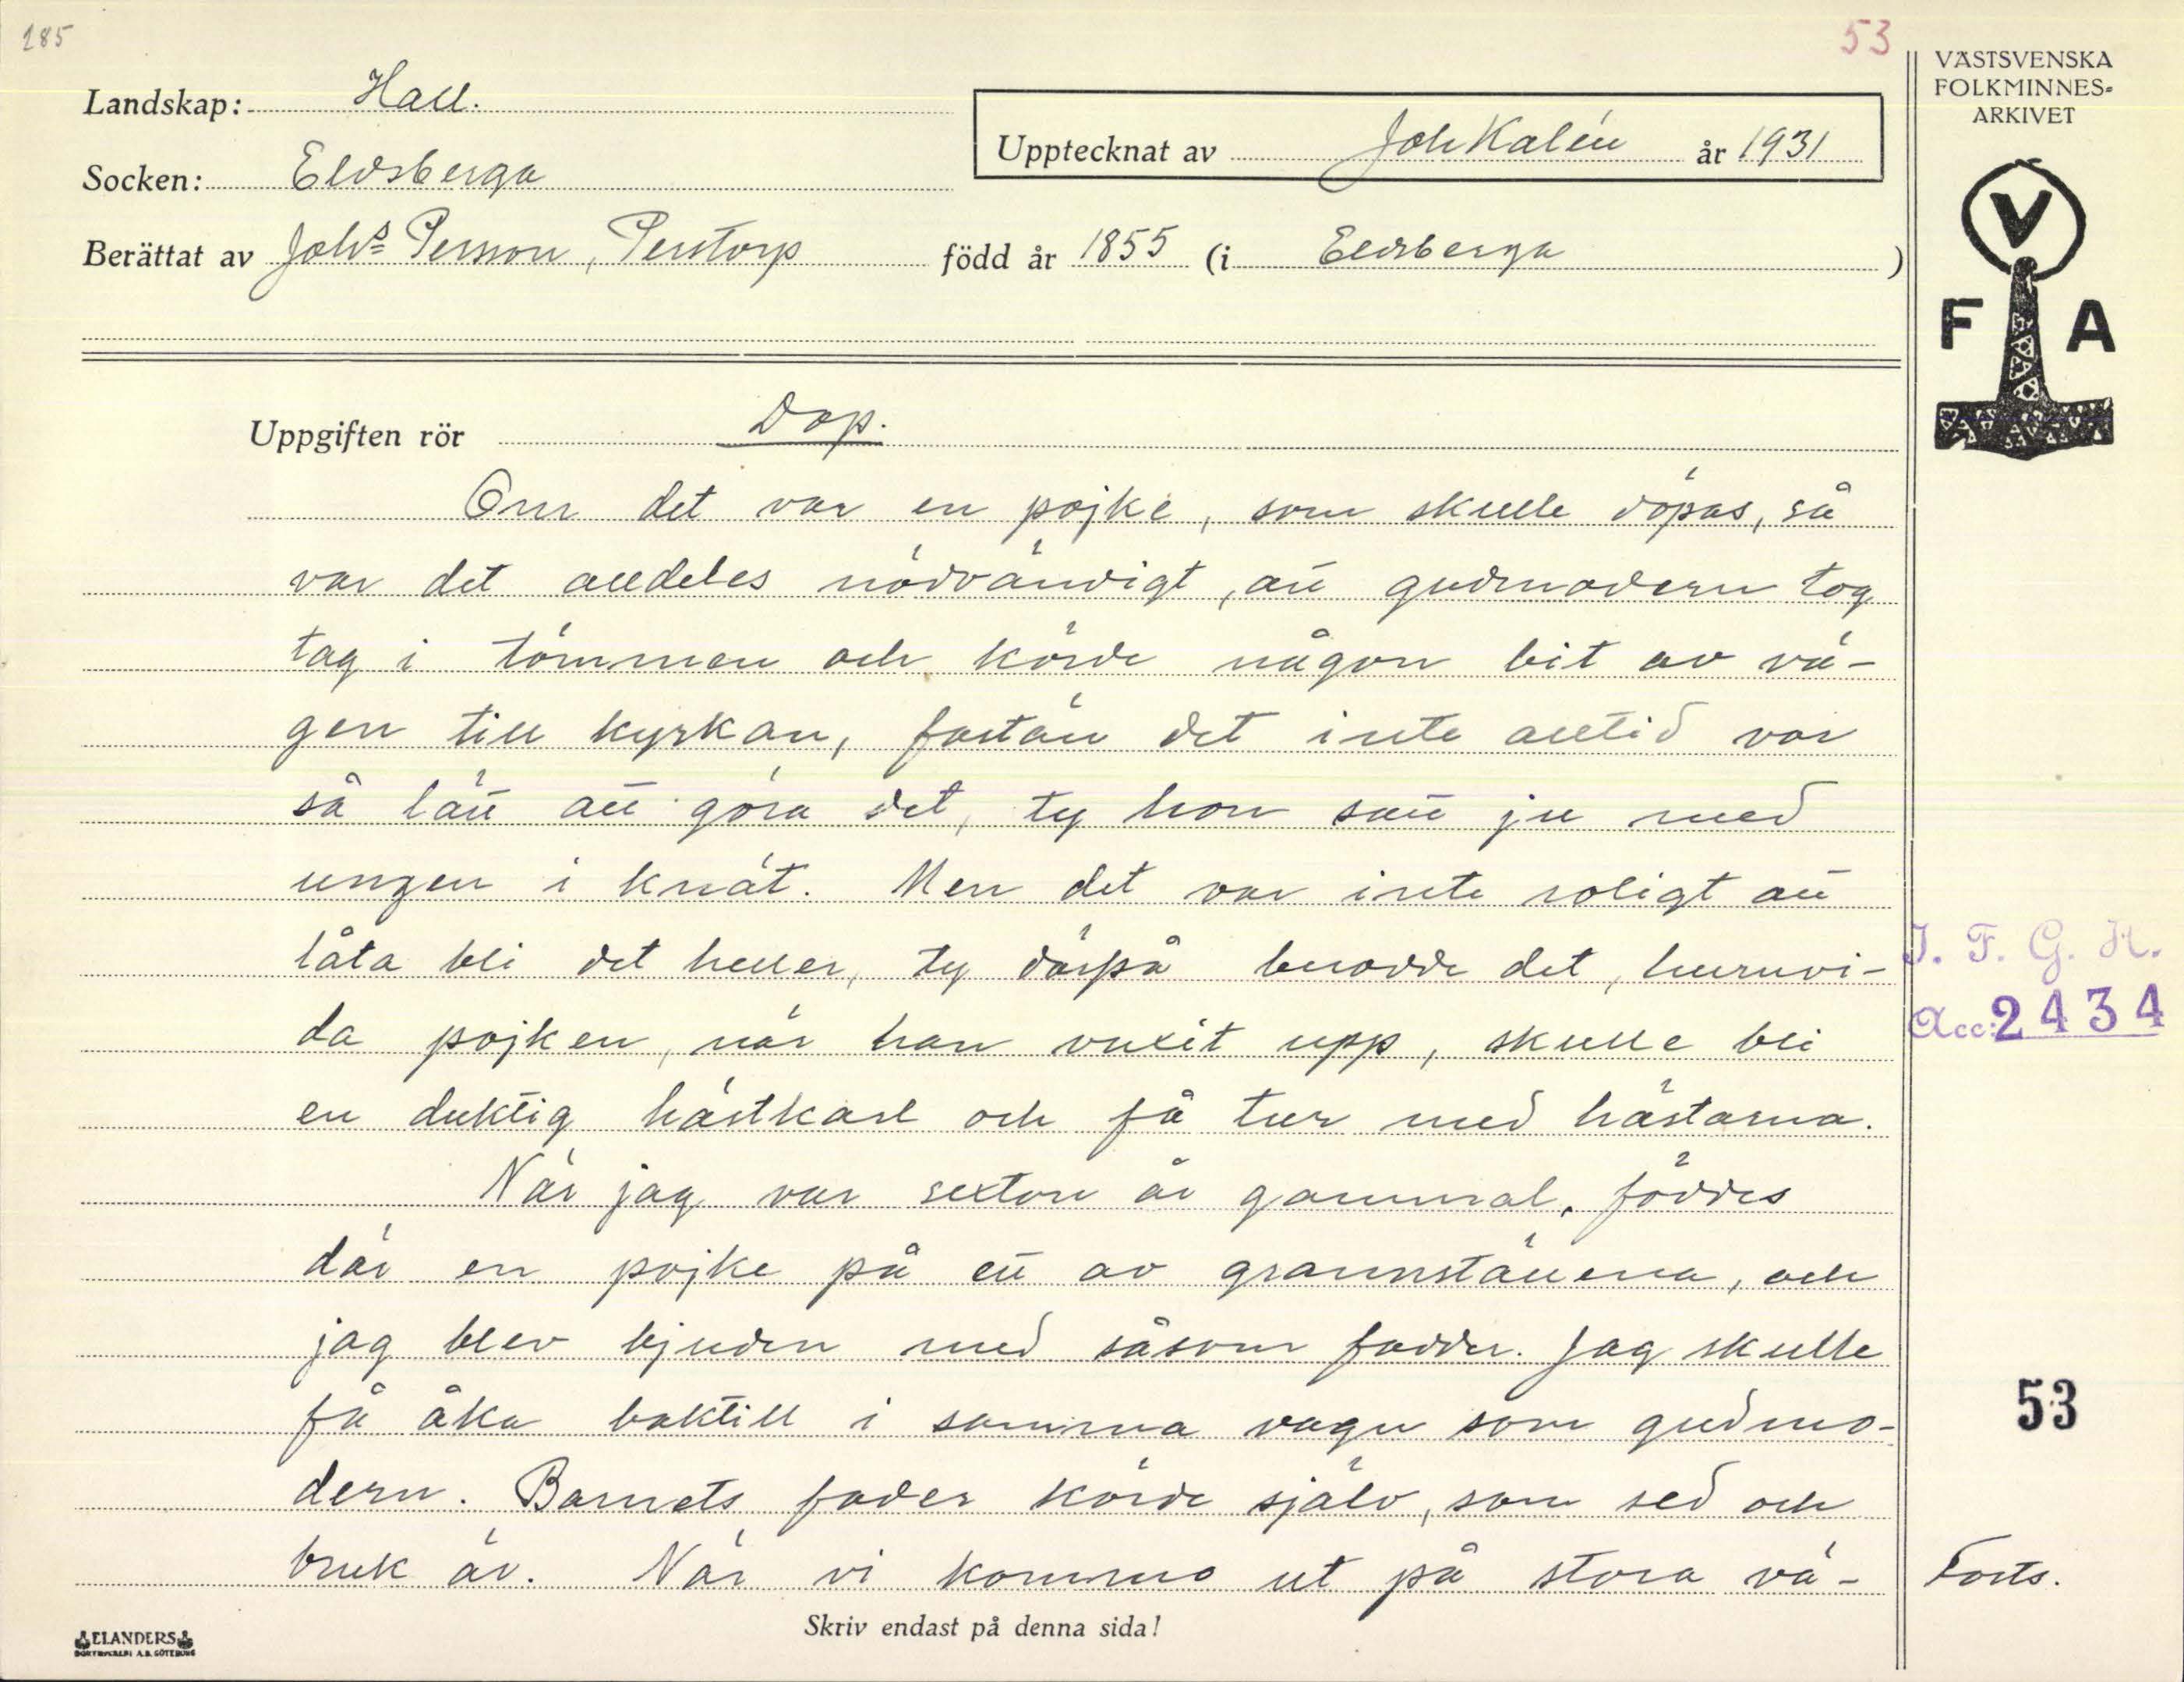 185
53
VÄSTSVENSKA
FOLKMINNES-
ARKIVET
Landskap: Hall.
Upptecknat av Joh Kalén år 1931
Socken: Eldsberga
Berättat av Johs Persson, Perstorp född år 1855 (i Eldsberga )
V
F A
Uppgiften rör Dop.
Om det var en pojke, som skulle döpas, så
var det alldeles nödvändigt, att gudmodern tog
tag i tömmen och körde någon bit av vä-
gen till kyrkan, fastän det inte alltid var
så lätt att göra det, ty hon satt ju med
ungen i knät. Men det var inte roligt att
låta bli det heller, ty därpå berodde det, huruvi-
da pojken, när han vuxit upp, skulle bli
en duktig hästkarl och få tur med hästarna.
När jag var sexton år gammal, föddes
där en pojke på ett av grannställena, och
jag blev bjuden med såsom fadder. Jag skulle
få åka baktill i samma vagn som gudmo-
dern. Barnets fader körde själv, som sed och
bruk är. När vi kommo ut på stora vä-
I. F. G. H.
Acc: 2434
53
Forts.
Skriv endast på denna sida!
ELANDERS
BOKTRYCKERI A.B. GÖTEBORG